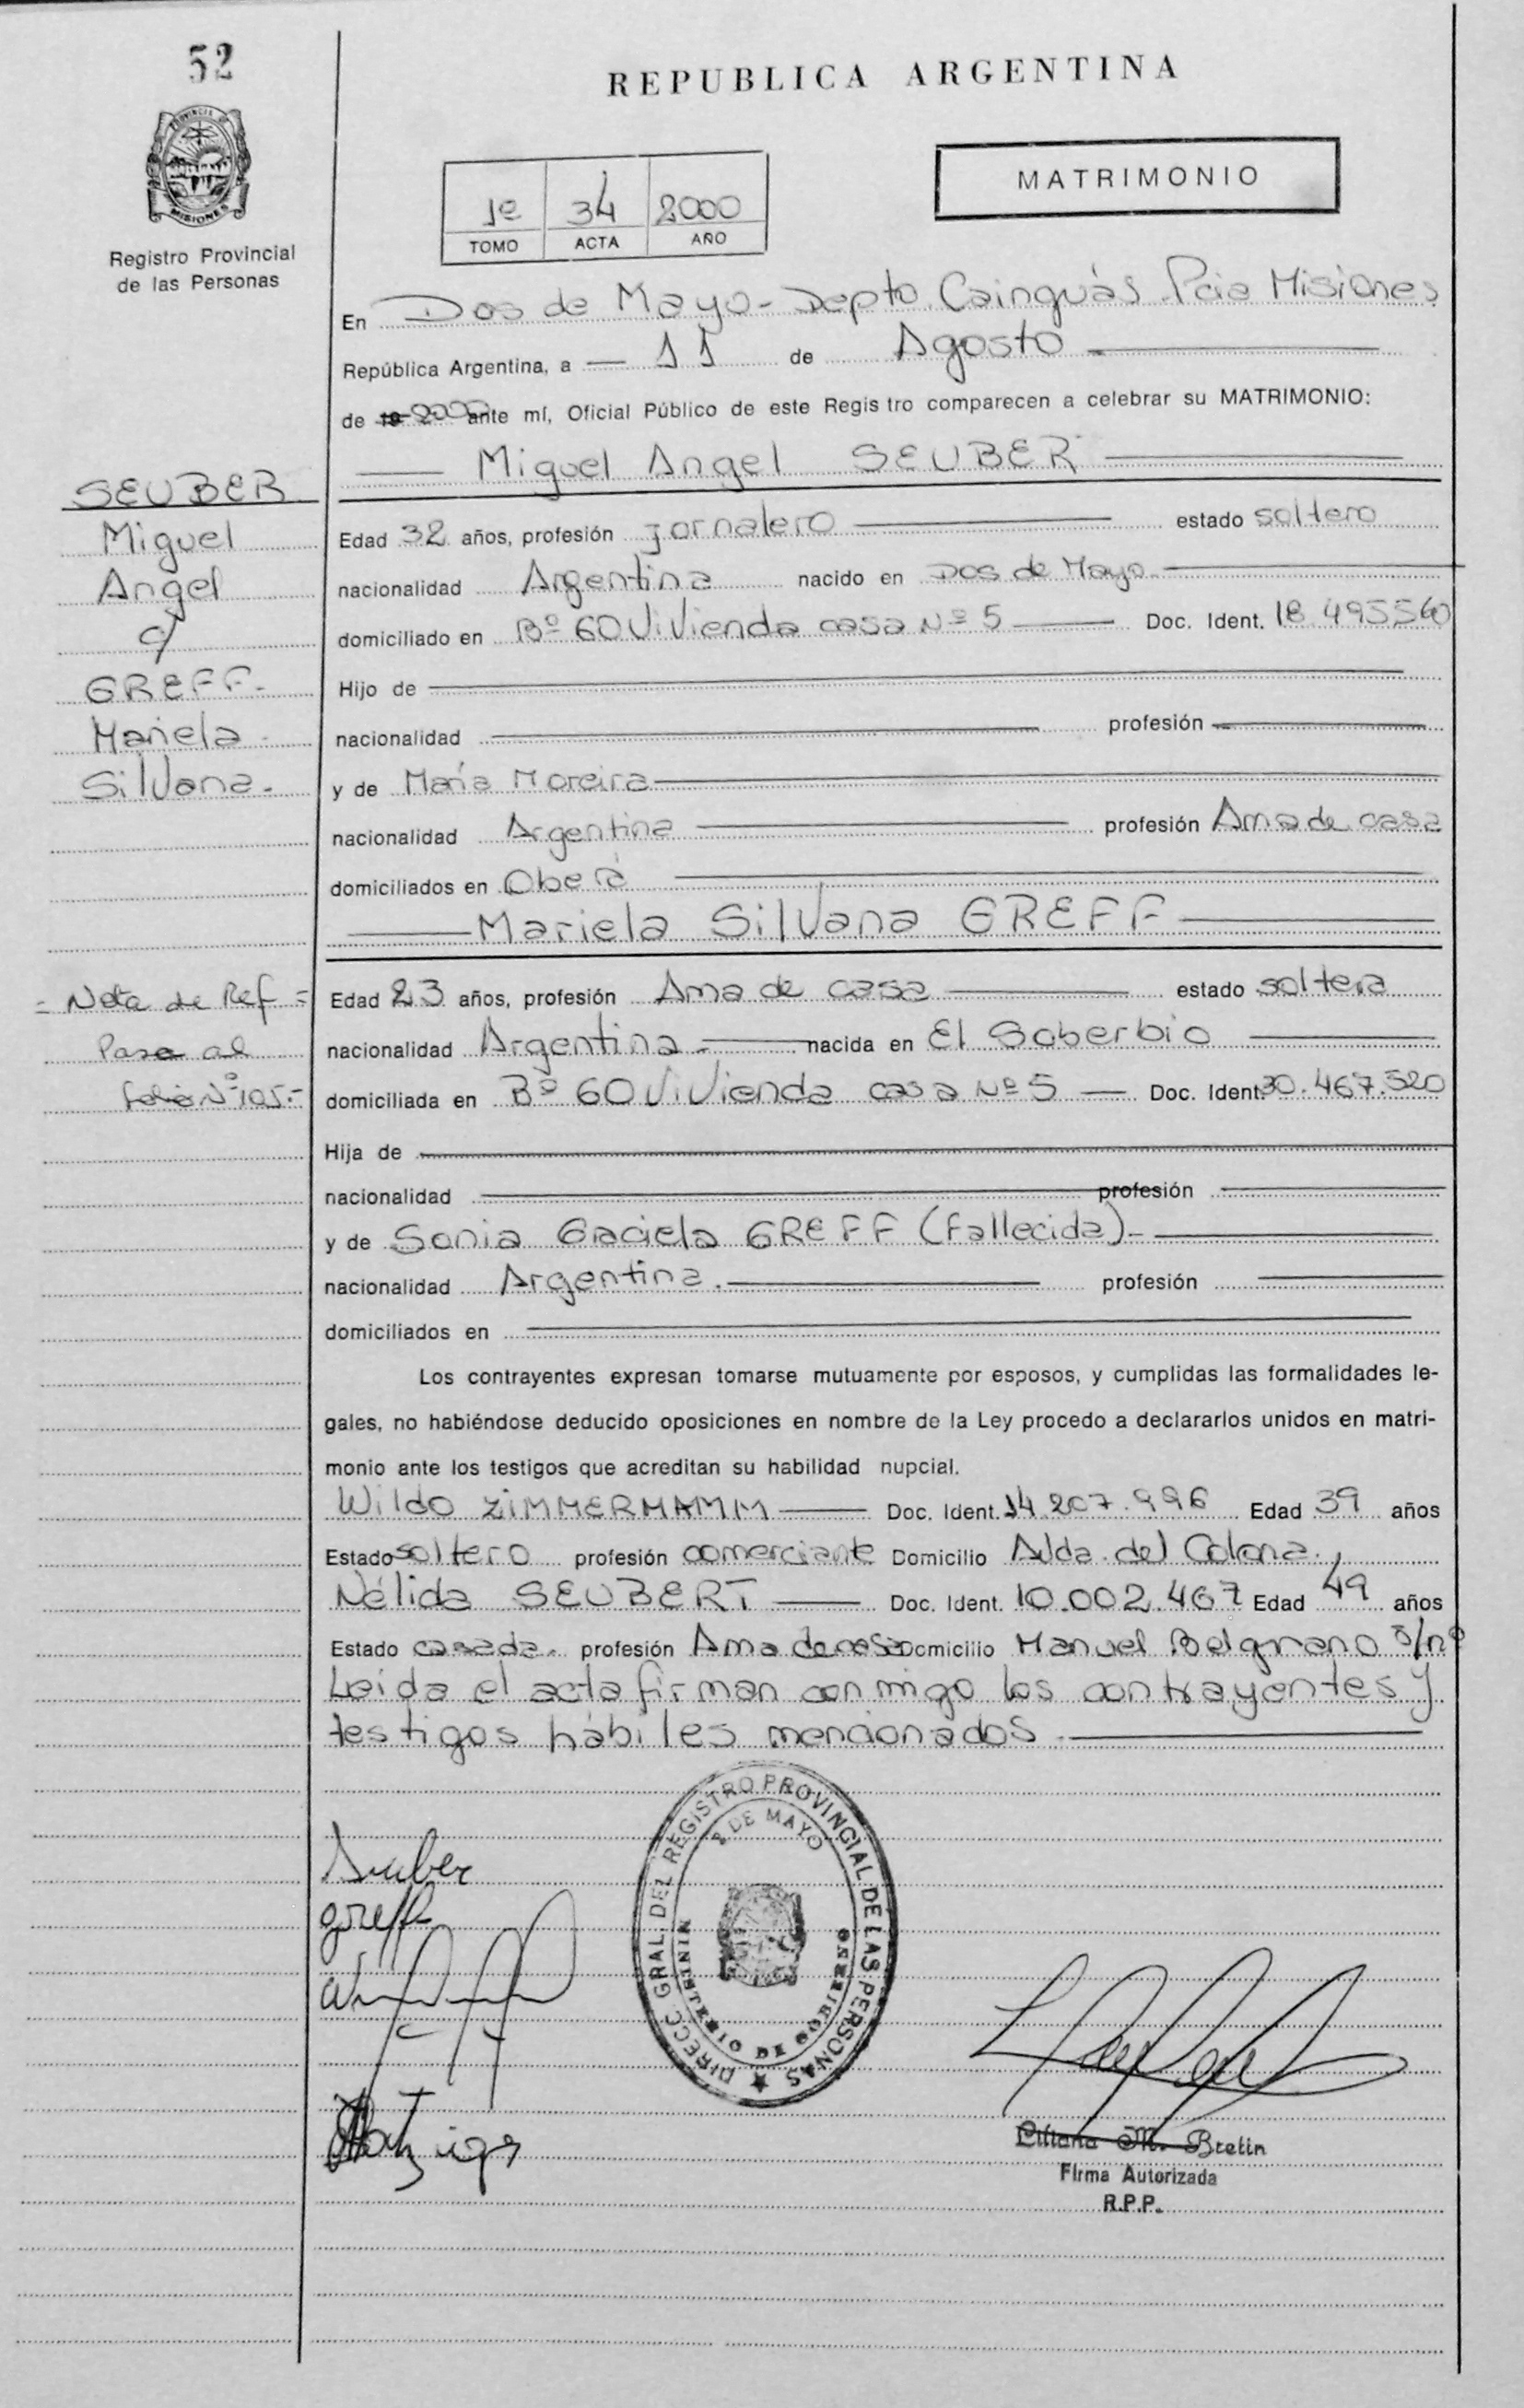 52
REPUBLICA ARGENTINA
PROVINCIA DE
MISIONES
Registro Provincial
de las Personas
MATRIMONIO
1º 34 2000
TOMO ACTA AÑO
En Dos de Mayo - Depto. Cainguás Pcia Misiones
República Argentina, a — 11 de Agosto
de 19 2000 ante mí, Oficial Público de este Regis tro comparecen a celebrar su MATRIMONIO:
Miguel Angel SEUBER
SEUBER
Miguel
Angel
c/
GREFF.
Mariela
Silvana.
Edad 32 años, profesión jornalero estado soltero
nacionalidad Argentina nacido en Dos de Mayo
domiciliado en Bº 60 Vivienda casa Nº 5 Doc. Ident. 18.495560
Hijo de
nacionalidad profesión
y de María Moreira
nacionalidad Argentina profesión Ama de casa
domiciliados en Oberá
Mariela Silvana GREFF
= Nota de Ref =
Pase al
folio Nº 105.-
Edad 23 años, profesión Ama de casa estado soltera
nacionalidad Argentina. nacida en El Soberbio
domiciliada en Bº 60 Vivienda casa Nº 5 Doc. Ident. 30.467.520
Hija de
nacionalidad profesión
y de Sonia Graciela GREFF (Fallecida).
nacionalidad Argentina. profesión
domiciliados en
Los contrayentes expresan tomarse mutuamente por esposos, y cumplidas las formalidades le-
gales, no habiéndose deducido oposiciones en nombre de la Ley procedo a declararlos unidos en matri-
monio ante los testigos que acreditan su habilidad nupcial.
Wildo ZIMMERMAMM Doc. Ident. 14.207.996 Edad 39 años
Estado soltero profesión comerciante Domicilio Avda. del Colono.
Nélida SEUBERT Doc. Ident. 10.002.467 Edad 49 años
Estado casada. profesión Ama de casa Domicilio Manuel Belgrano s/nº
Leída el acta firman conmigo los contrayentes y
testigos hábiles mencionados
DIRECC. GRAL. DEL REGISTRO PROVINCIAL DE LAS PERSONAS
2 DE MAYO
MINISTERIO DE GOBIERNO
Seuber
Greff
Liliana M. Brelin
Firma Autorizada
R.P.P.